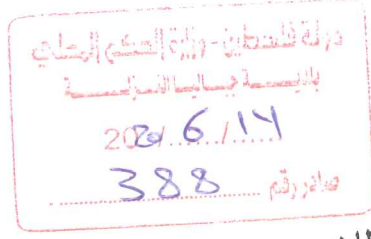 دولة فلسطين - وزارة الحكم المحلي
بلدية جباليا النزلة
2020/6/14
صادر رقم 388